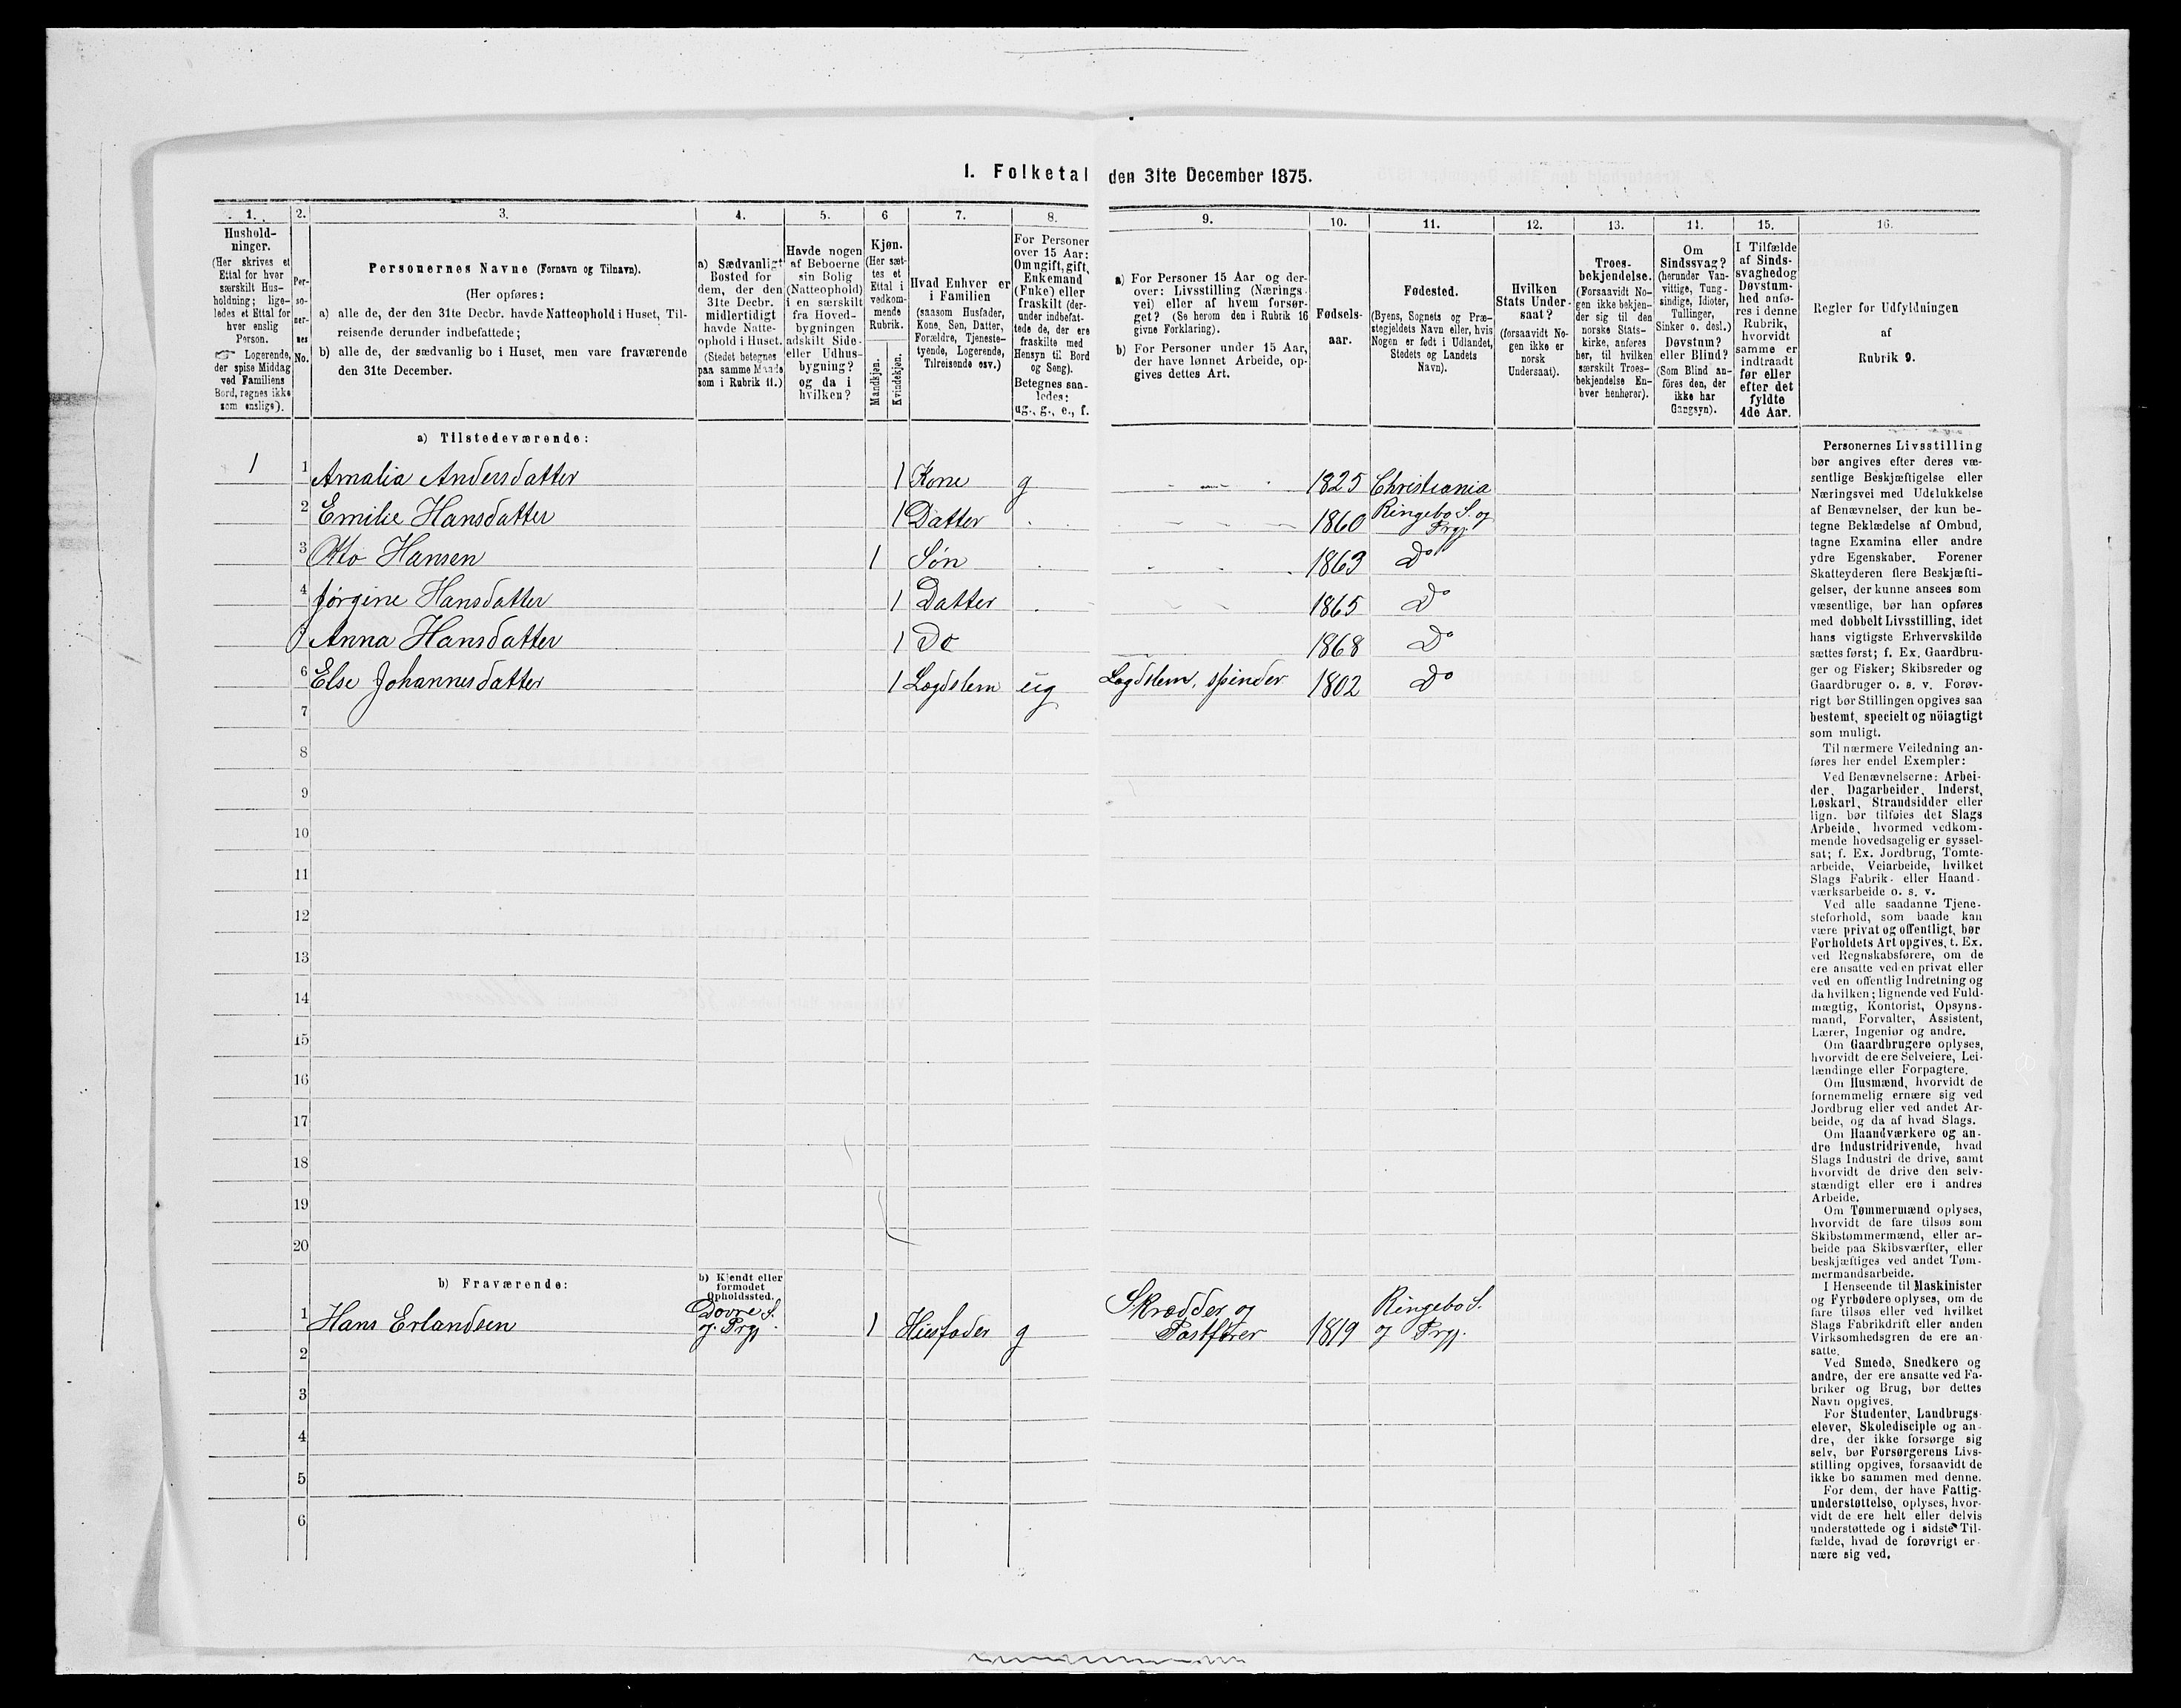 1. Folketal den 31te December 1875.
1. 2. 3. 4. 5. 6 7. 8. 9. 10. 11. 12. 13. 14. 15. 16.
Hushold-
ninger.
(Her skrives et
Ettal for hver
særskilt Hus-
holdning; lige-
ledes et Ettal for
hver enslig
Person.
☞ Logerende,
der spise Middag
ved Familiens
Bord, regnes ikke
som enslige).
Per-
so-
ner-
nes
No.
Personernes Navne (Fornavn og Tilnavn).
(Her opføres:
a) alle de, der den 31te Decbr. havde Natteophold i Huset, Til-
reisende derunder indbefattede;
b) alle de, der sædvanlig bo i Huset, men vare fraværende
den 31te December.
a) Sædvanligt
Bosted for
dem, der den
31te Decbr.
midlertidigt
havde Natte-
ophold i Huset.
(Stedet betegnes
paa samme Maade
som i Rubrik 11.)
Havde nogen
af Beboerne
sin Bolig
(Natteophold)
i en særskilt
fra Hoved-
bygningen
adskilt Side-
eller Udhus-
bygning?
og da i
hvilken?
Kjøn.
(Her sæt-
tes et
Ettal i
vedkom-
mende
Rubrik.
Mandkjøn.
Kvindekjøn.
Hvad Enhver er
i Familien
(saasom Husfader,
Kone, Søn, Datter,
Forældre, Tjeneste-
tyende, Logerende,
Tilreisende osv.)
For Personer
over 15 Aar:
Om ugift, gift,
Enkemand
(Enke) eller
fraskilt (der-
under indbefat-
tede de, der ere
fraskilte med
Hensyn til Bord
og Seng).
Betegnes saa-
ledes:
ug., g., e., f.
a) For Personer 15 Aar og der-
over: Livsstilling (Nærings-
vei) eller af hvem forsør-
get? (Se herom den i Rubrik 16
givne Forklaring).
b) For Personer under 15 Aar,
der have lønnet Arbeide, op-
gives dettes Art.
Fødsels-
aar.
Fødested.
(Byens, Sognets og Præ-
stegjeldets Navn eller, hvis
Nogen er født i Udlandet,
Stedets og Landets
Navn).
Hvilken
Stats Under-
saat?
(forsaavidt No-
gen ikke er
norsk
Undersaat).
Troes-
bekjendelse.
(Forsaavidt No-
gen ikke bekjen-
der sig til den
norske Stats-
kirke, anføres
her, til hvilken
særskilt Troes-
bekjendelse En-
hver henhører).
Om
Sindssvag?
(herunder Van-
vittige, Tung-
sindige, Idioter,
Tullinger,
Sinker o. desl.)
Døvstum?
eller Blind?
(Som Blind an-
føres den, der
ikke har
Gangsyn).
I Tilfælde
af Sinds-
svaghed og
Døvstum-
hed anfø-
res i denne
Rubrik,
hvorvidt
samme er
indtraadt
før eller
efter det
fyldte
4de Aar.
Regler for Udfyldningen
af
Rubrik 9.
a) Tilstedeværende:
1 1 Amalia Andersdatter 1 Kone g 1825 Christiania
2 Emilie Hansdatter 1 Datter 1860 Ringebo S. og Prgj
3 Otto Hansen 1 Søn 1863 Do
4 Jørgine Hansdatter 1 Datter 1865 Do
5 Anna Hansdatter 1 Do 1868 Do
6 Else Johannesdatter 1 Lægdslem ug Lægdslem, spinder 1802 Do
7
8
9
10
11
12
13
14
15
16
17
18
19
20
b) Fraværende:
b) Kjendt eller
formodet
Opholdssted.
1 Hans Erlandsen Dovre S. og Prgj. 1 Husfader g Skrædder og Postfører 1819 Ringebo S. og Prgj.
2
3
4
5
6
Personernes Livsstilling
bør angives efter deres væ-
sentlige Beskjæftigelse eller
Næringsvei med Udelukkelse
af Benævnelser, der kun be-
tegne Beklædelse af Ombud,
tagne Examina eller andre
ydre Egenskaber. Forener
Skatteyderen flere Beskjæfti-
gelser, der kunne ansees som
væsentlige, bør han opføres
med dobbelt Livsstilling, idet
hans vigtigste Erhvervskilde
sættes først; f. Ex. Gaardbru-
ger og Fisker; Skibsreder og
Gaardbruger o. s. v. Forøv-
rigt bør Stillingen opgives saa
bestemt, specielt og nöiagtigt
som muligt.
Til nærmere Veiledning an-
føres her endel Exempler:
Ved Benævnelserne: Arbei-
der, Dagarbeider, Inderst,
Løskarl, Strandsidder eller
lign. bør tilføies det Slags
Arbeide, hvormed vedkom-
mende hovedsagelig er syssel-
sat; f. Ex. Jordbrug, Tomte-
arbeide, Veiarbeide, hvilket
Slags Fabrik- eller Haand-
værksarbeide o. s. v.
Ved alle saadanne Tjene-
steforhold, som baade kan
være privat og offentligt, bør
Forholdets Art opgives, t. Ex.
ved Regnskabsførere, om de
ere ansatte ved en privat eller
ved en offentlig Indretning og
da hvilken; lignende ved Fuld-
mægtig, Kontorist, Opsyns-
mand, Forvalter, Assistent,
Lærer, Ingeniør og andre.
Om Gaardbrugere oplyses,
hvorvidt de ere Selveiere, Lei-
lændinge eller Forpagtere.
Om Husmænd, hvorvidt de
fornemmelig ernære sig ved
Jordbrug eller ved andet Ar-
beide, og da af hvad Slags.
Om Haandværkere og an-
dre Industridrivende, hvad
Slags Industri de drive, samt
hvorvidt de drive den selv-
stændigt eller ere i andres
Arbeide.
Om Tømmermænd oplyses,
hvorvidt de fare tilsøs som
Skibstømmermænd, eller ar-
beide paa Skibsværfter, eller
beskjæftiges ved andet Tøm-
mermandsarbeide.
I Henseende til Maskinister
og Fyrbødere oplyses, om de
fare tilsøs eller ved hvilket
Slags Fabrikdrift eller anden
Virksomhedsgren de ere an-
satte.
Ved Smede, Snedkere og
andre, der ere ansatte ved Fa-
briker og Brug, bør dettes
Navn opgives.
For Studenter, Landbrugs-
elever, Skoledisciple og an-
dre, der ikke forsørge sig
selv, bør Forsørgerens Livs-
stilling opgives, forsaavidt de
ikke bo sammen med denne.
For dem, der have Fattig-
understøttelse, oplyses, hvor-
vidt de ere helt eller delvis
understøttede og i sidste Til-
fælde, hvad de forøvrigt er-
nære sig ved.